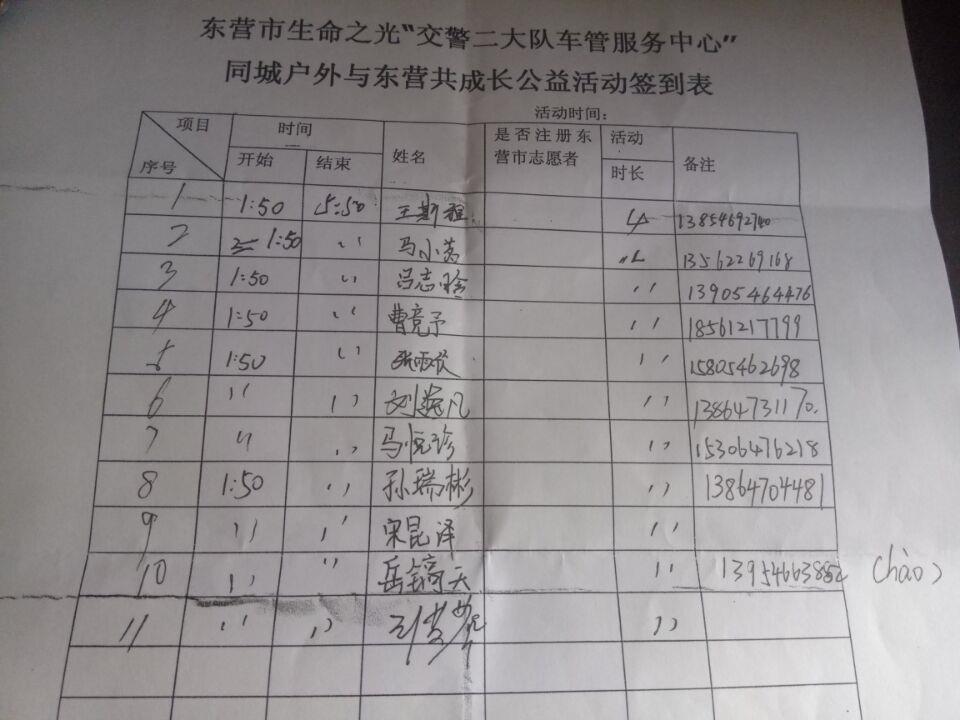 东营市生命之光“交警二大队车管服务中心”
同城户外与东营共成长公益活动签到表
活动时间：
项目 序号 时间 开始 结束 姓名 是否注册东营市志愿者 活动时长 备注
1 1:50 5:50 王斯程 4 13854692740
2 1:50 〃 马小茗 〃 13562269168
3 1:50 〃 吕志玲 〃 13905464476
4 1:50 〃 曹竞予 〃 18561217799
5 1:50 〃 张雨欣 〃 15805462698
6 〃 〃 刘凡 〃 13864731170.
7 〃 〃 马悦珍 〃 15306476218
8 1:50 〃 孙瑞彬 〃 13864704481
9 〃 〃 宋昆泽 〃
10 〃 〃 岳镐天 〃 1395466385 (hào)
11 〃 〃 〃